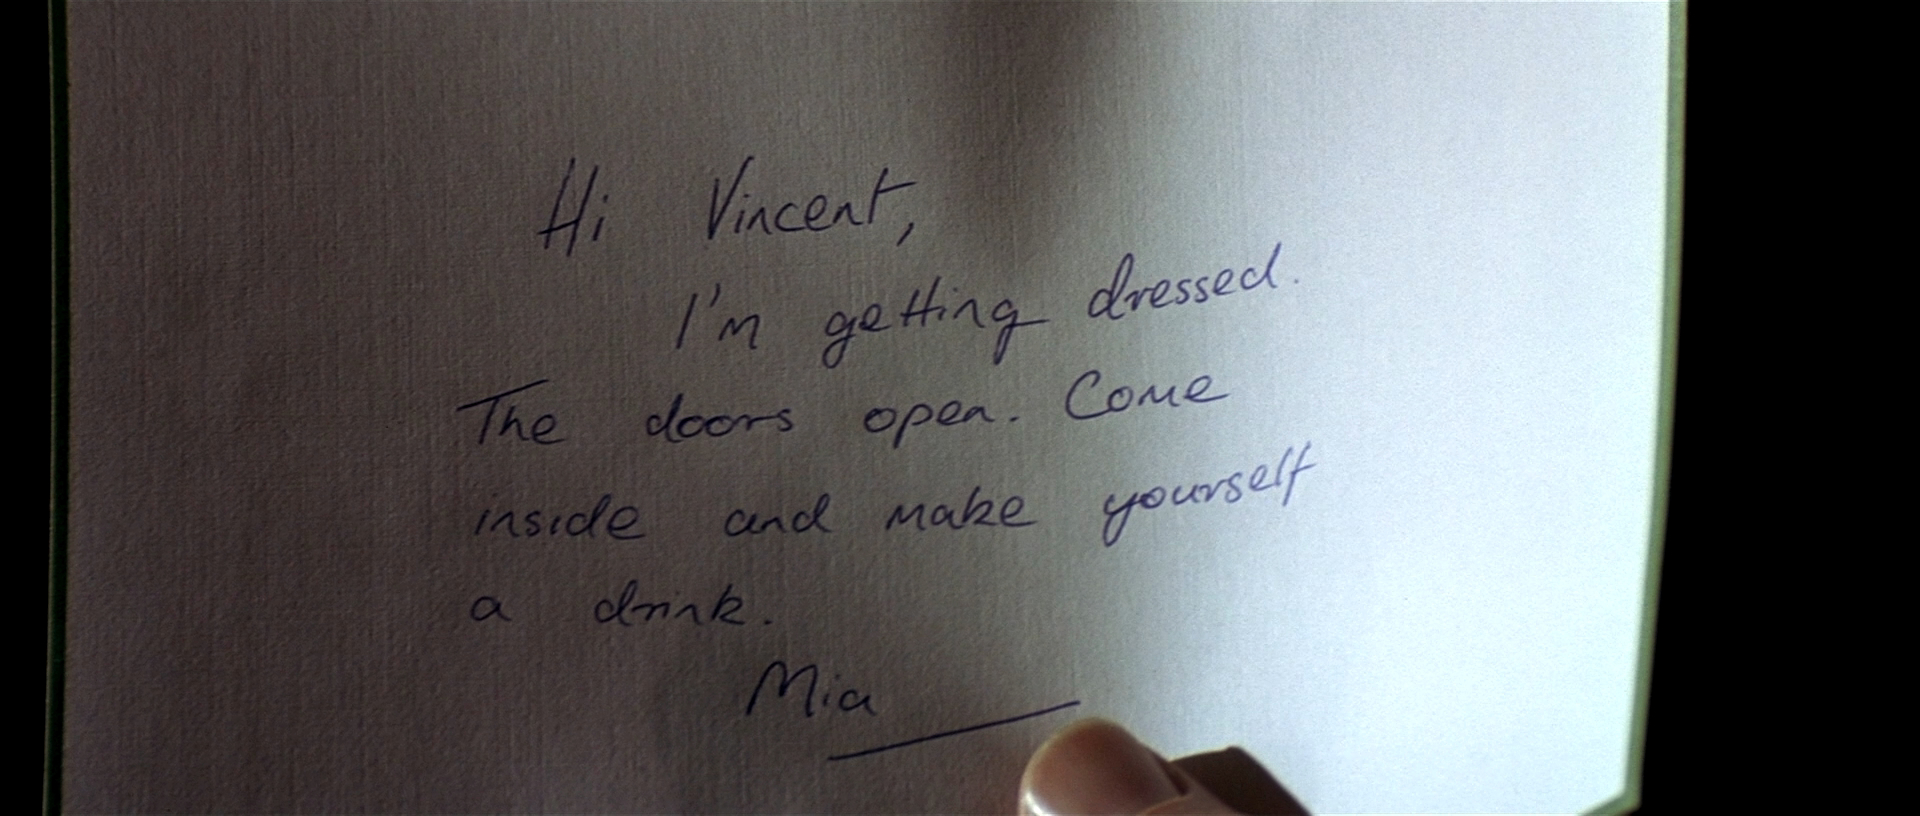 Hi Vincent,
I'm getting dressed.
The doors open. Come
inside and make yourself
a drink.
Mia